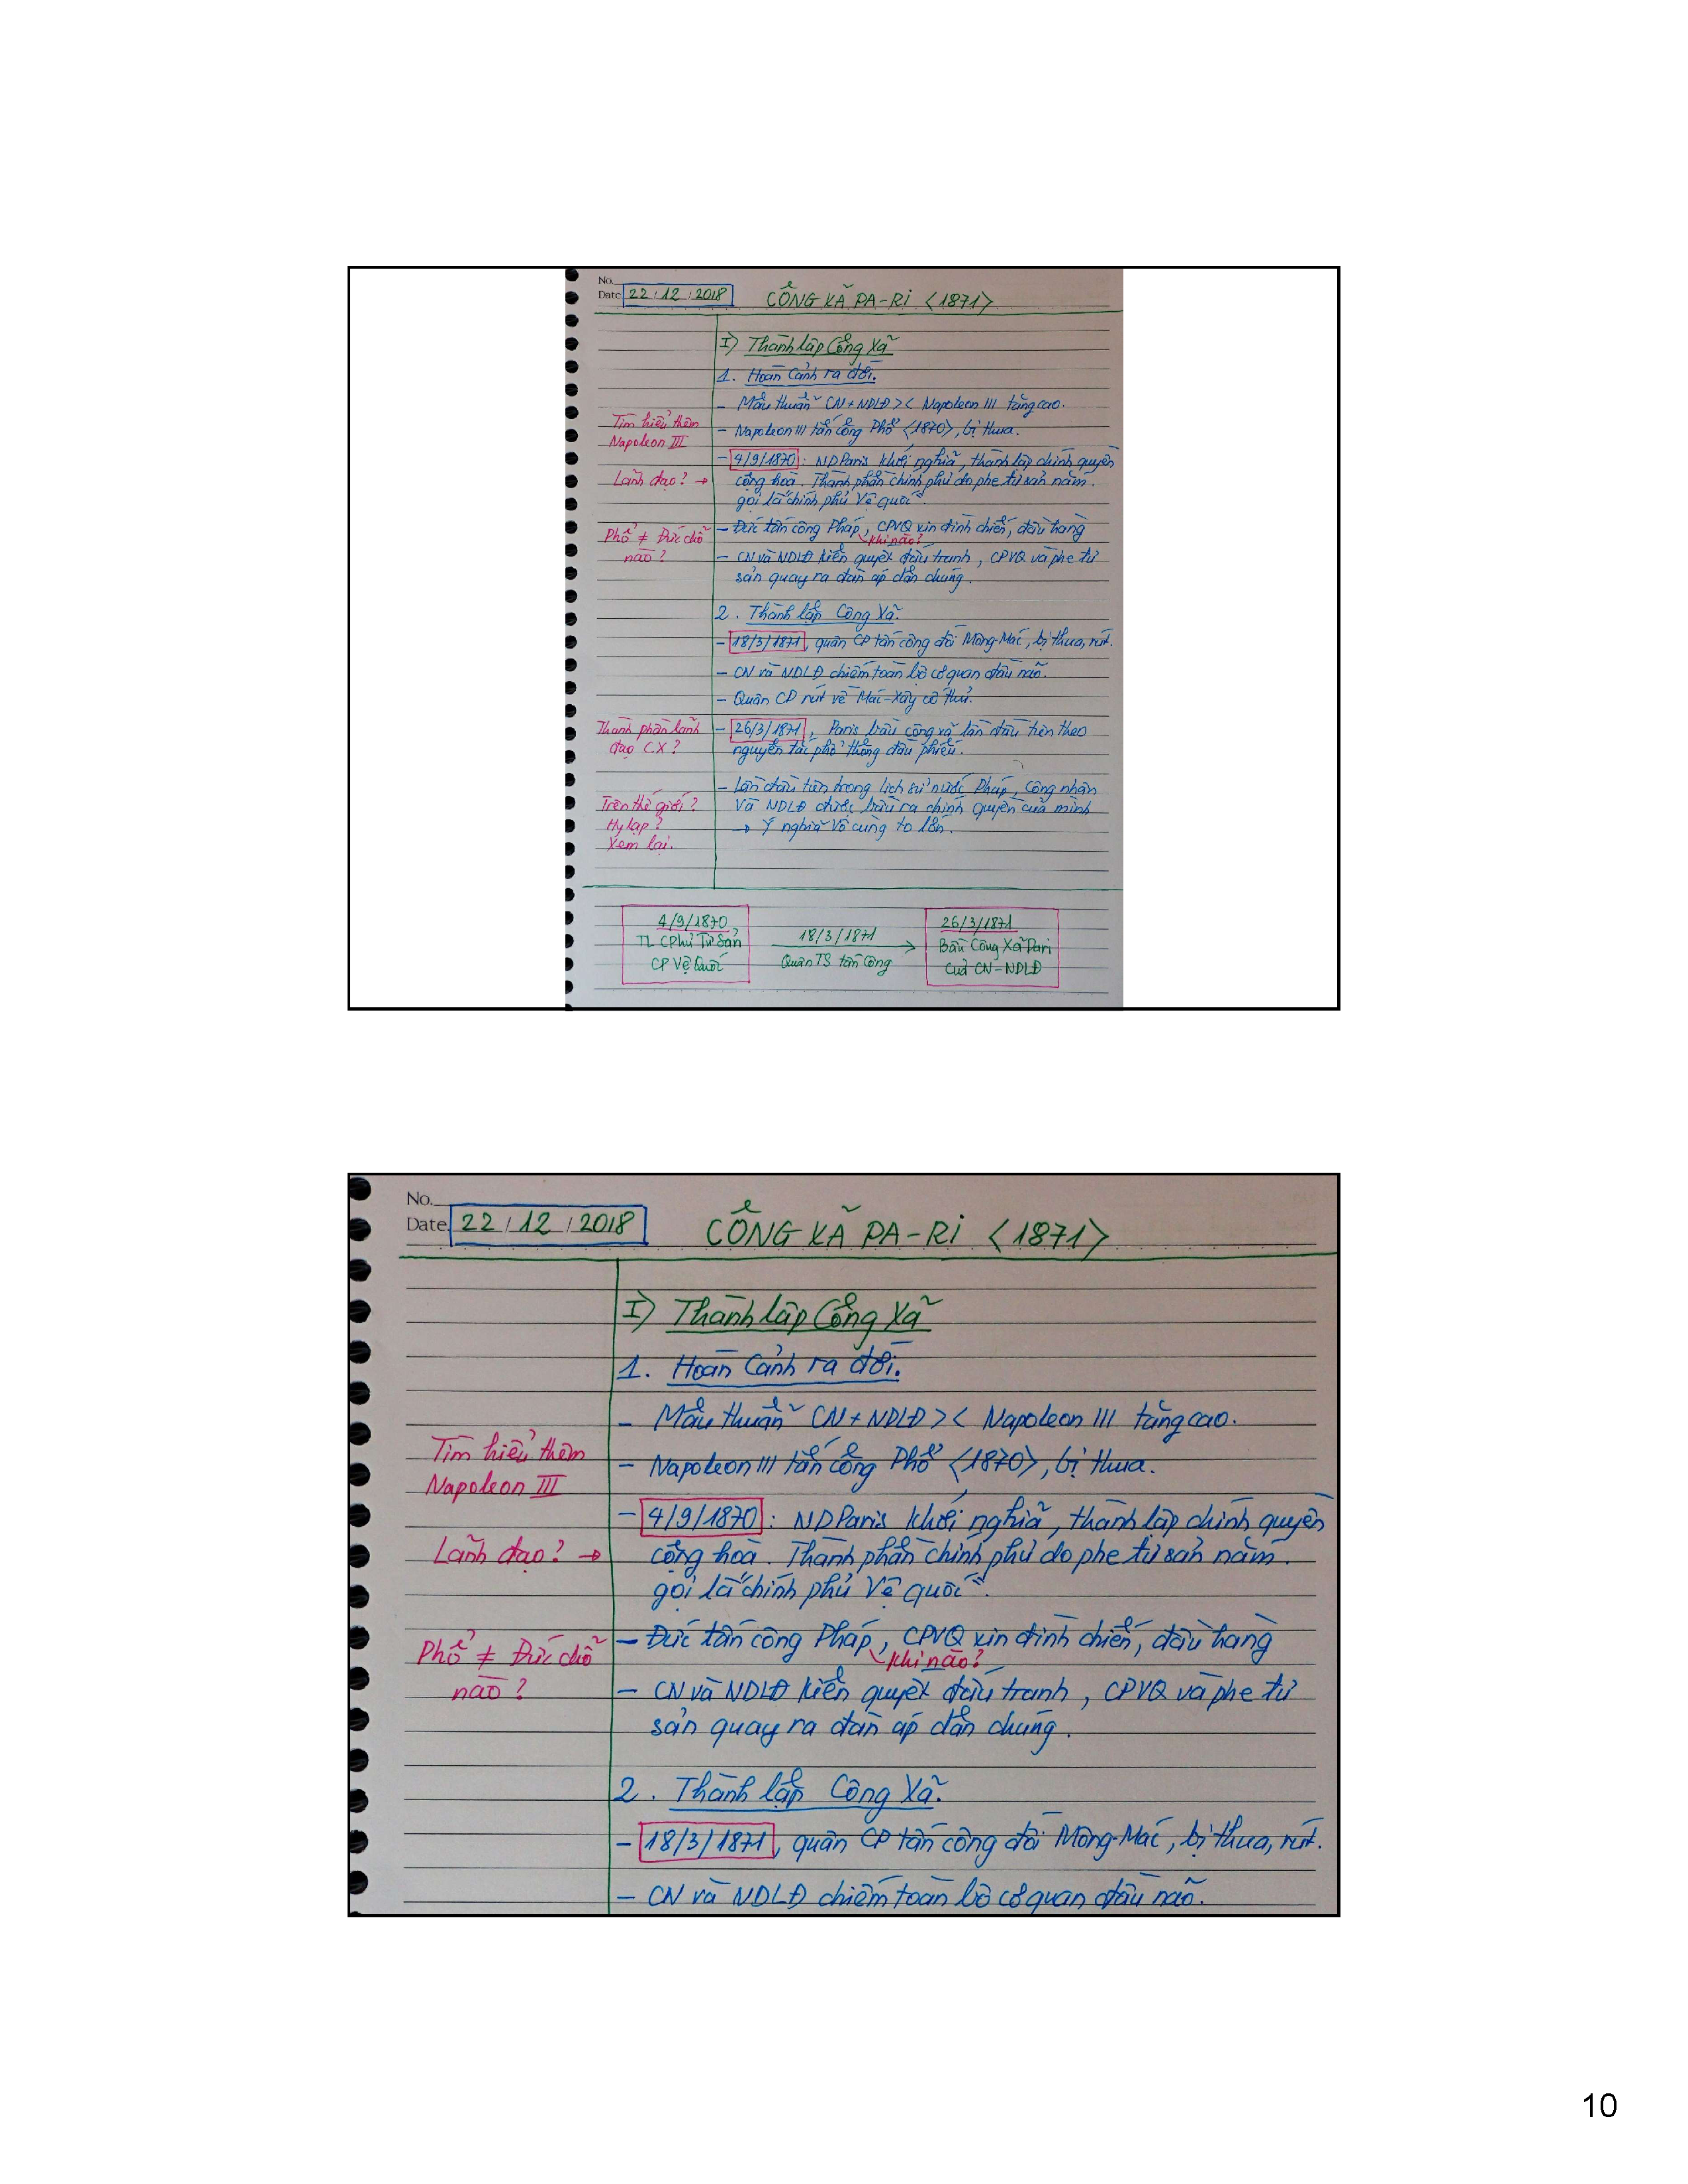 No.
Date 22/12/2018
CÔNG XÃ PA-RI <1871>
I) Thành lập Công Xã
1. Hoàn Cảnh ra đời.
- Mâu thuẫn CN + NDLĐ >< Napoleon III tăng cao.
Tìm hiểu thêm
Napoleon III
- Napoleon III tấn công Phổ <1870>, bị thua.
- 4/9/1870: ND Paris khởi nghĩa, thành lập chính quyền
Lãnh đạo? →
cộng hoà. Thành phần chính phủ do phe tư sản nắm.
gọi là "chính phủ Vệ quốc".
Phổ ≠ Đức chỗ
nào?
- Đức tấn công Pháp, CPVQ xin đình chiến, đầu hàng
khi nào?
- CN và NDLĐ kiên quyết đấu tranh, CPVQ và phe tư
sản quay ra đàn áp dân chúng.
2. Thành lập Công Xã.
- 18/3/1871, quân CP tấn công đồi Mông-Mác, bị thua, rút.
- CN và NDLĐ chiếm toàn bộ cơ quan đầu não.
- Quân CP rút về Mác-Xây cố thủ.
Thành phần lãnh
đạo CX?
- 26/3/1871, Paris bầu công xã lần đầu tiên theo
nguyên tắc phổ thông đầu phiếu.
- Lần đầu tiên trong lịch sử nước Pháp, Công nhân
Trên thế giới?
Hy lạp?
Xem lại.
Và NDLĐ được bầu ra chính quyền của mình
→ Ý nghĩa vô cùng to lớn.
4/9/1870
TL CPhủ Tư Sản
CP Vệ Quốc
18/3/1871
Quân TS tấn Công
26/3/1871
Bầu Công Xã Pari
Của CN-NDLĐ
No.
Date 22/12/2018
CÔNG XÃ PA-RI <1871>
I) Thành lập Công Xã
1. Hoàn Cảnh ra đời.
- Mâu thuẫn CN + NDLĐ >< Napoleon III tăng cao.
Tìm hiểu thêm
Napoleon III
- Napoleon III tấn công Phổ <1870>, bị thua.
- 4/9/1870: ND Paris khởi nghĩa, thành lập chính quyền
Lãnh đạo? →
cộng hoà. Thành phần chính phủ do phe tư sản nắm.
gọi là "chính phủ Vệ quốc".
Phổ ≠ Đức chỗ
nào?
- Đức tấn công Pháp, CPVQ xin đình chiến, đầu hàng
khi nào?
- CN và NDLĐ kiên quyết đấu tranh, CPVQ và phe tư
sản quay ra đàn áp dân chúng.
2. Thành lập Công Xã.
- 18/3/1871, quân CP tấn công đồi Mông-Mác, bị thua, rút.
- CN và NDLĐ chiếm toàn bộ cơ quan đầu não.
10